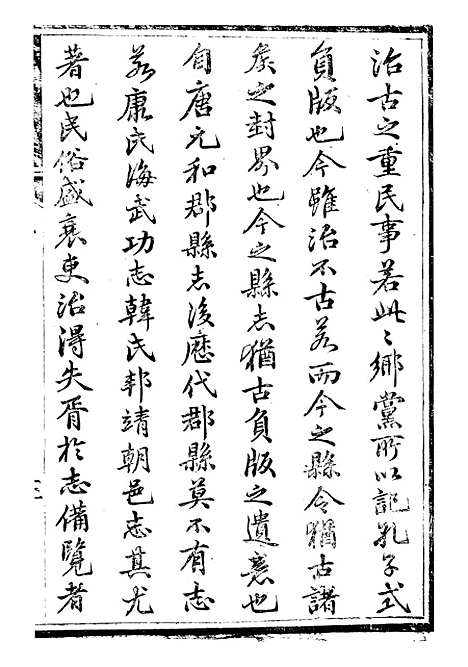 治古之重民事若此此鄉黨所以記孔子式
負版也今雖治不古若而今之縣令猶古諸
矦之封界也今之縣志猶古負版之遺意也
自唐元和郡縣志後歷代郡縣莫不有志
若康氏海武功志韓氏邦靖朝邑志其尤
著也民俗盛衰吏治得失胥於志備覽者